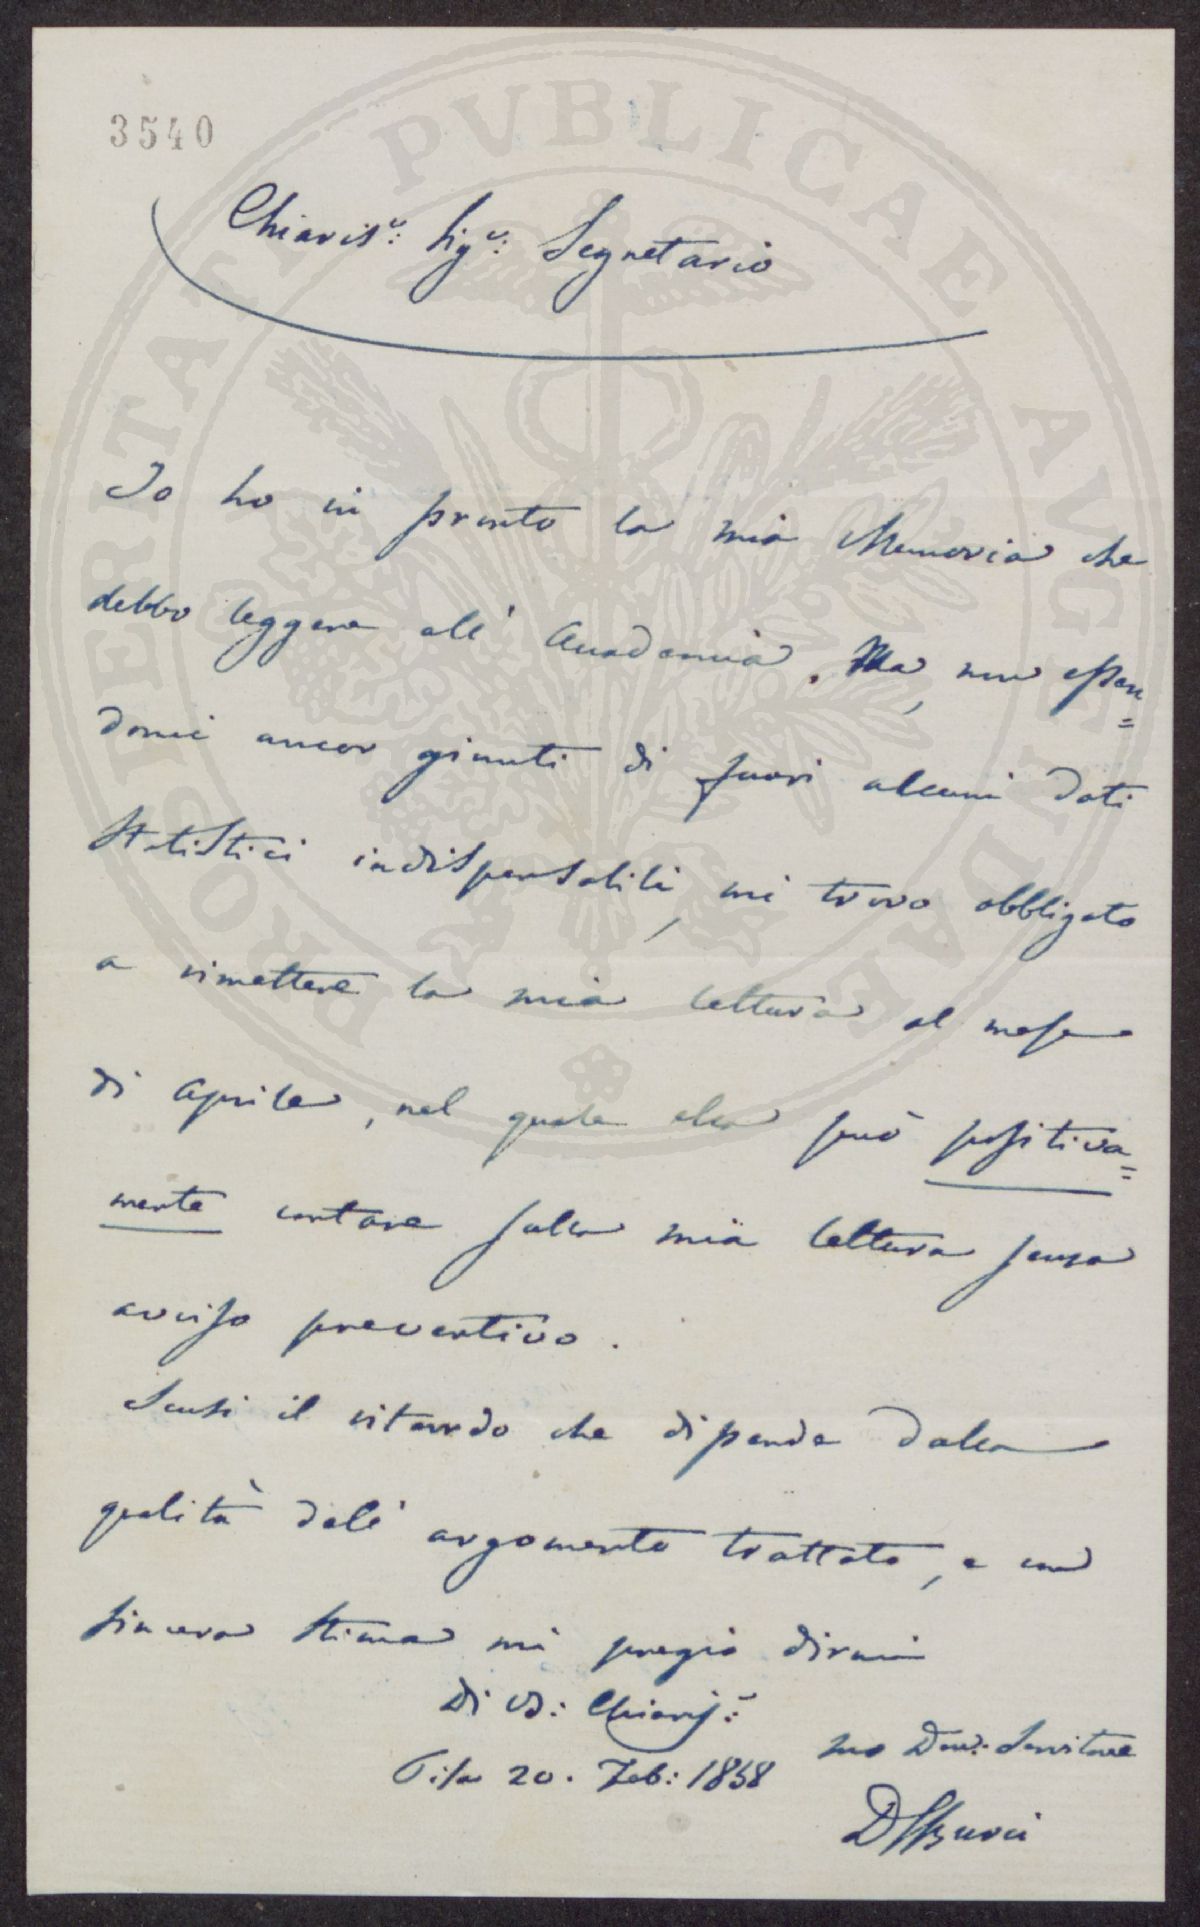 3540
Chiaris.º: Sig.º: Segretario
Io ho in pronto la mia Memoria che
debbo leggere all' Accademia. Ma, non essen=
domi ancor giunti di fuori alcuni dati
Statistici indispensabili, mi trovo obbligato
a rimettere la mia lettura al mese
di Aprile, nel quale ella può positiva=
mente contare sulla mia lettura senza
avviso preventivo.
Scusi il ritardo che dipende dalla
qualità dell' argomento trattato, e con
sincera stima mi pregio dirmi
Di VS: Chiaris:
suo Dev: Servitore
Pisa 20. Feb: 1858
PROSPERITATI PVBLICAE AVGENDAE